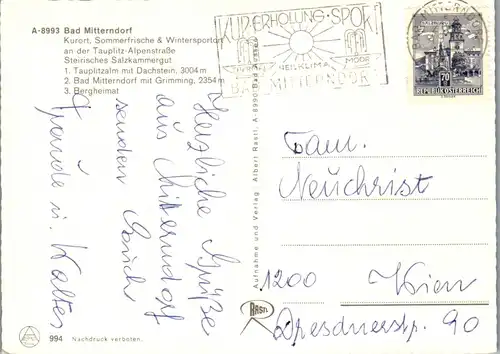 A-8993 Bad Mitterndorf
Kurort, Sommerfrische & Wintersportort
an der Tauplitz-Alpenstraße
Steirisches Salzkammergut
1. Tauplitzalm mit Dachstein, 3004 m
2. Bad Mitterndorf mit Grimming, 2354 m
3. Bergheimat
KUR·ERHOLUNG·SPORT
HEILKLIMA
MOOR
BAD MITTERNDORF
70
REPUBLIK ÖSTERREICH
Herzliche Grüße
aus Mitterndorf
senden Euch
Gerade u. Walter
Aufnahme und Verlag Albert Rastl, A-8990 Bad Aussee
Fam.
Neuchrist
1200 Wien
Dresdnerstr. 90
RASTL
994 Nachdruck verboten.